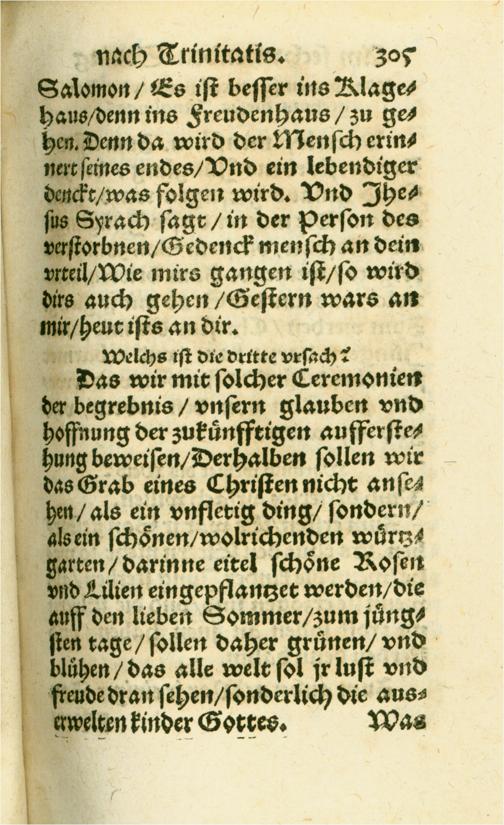 nach Trinitatis. 305
Salomon / Es ist besser ins Klage⸗
haus/denn ins Freudenhaus / zu ge⸗
hen. Denn da wird der Mensch erin⸗
nert seines endes/Vnd ein lebendiger
denckt/was folgen wird. Vnd Jhe⸗
sus Syrach sagt / in der Person des
verstorbnen/Gedenck mensch an dein
vrteil/Wie mirs gangen ist/so wird
dirs auch gehen /Gestern wars an
mir/heut ists an dir.
Welchs ist die dritte vrsach?
Das wir mit solcher Ceremonien
der begrebnis / vnsern glauben vnd
hoffnung der zukünfftigen aufferste⸗
hung beweisen/Derhalben sollen wir
das Grab eines Christen nicht anse⸗
hen/ als ein vnfletig ding/ sondern/
als ein schönen/wolrichenden würtz⸗
garten/ darinne eitel schöne Rosen
vnd Lilien eingepflantzet werden/die
auff den lieben Sommer/zum jüng⸗
sten tage/ sollen daher grünen/ vnd
blühen / das alle welt sol jr lust vnd
freude dran sehen/sonderlich die aus⸗
erwelten kinder Gottes. Was